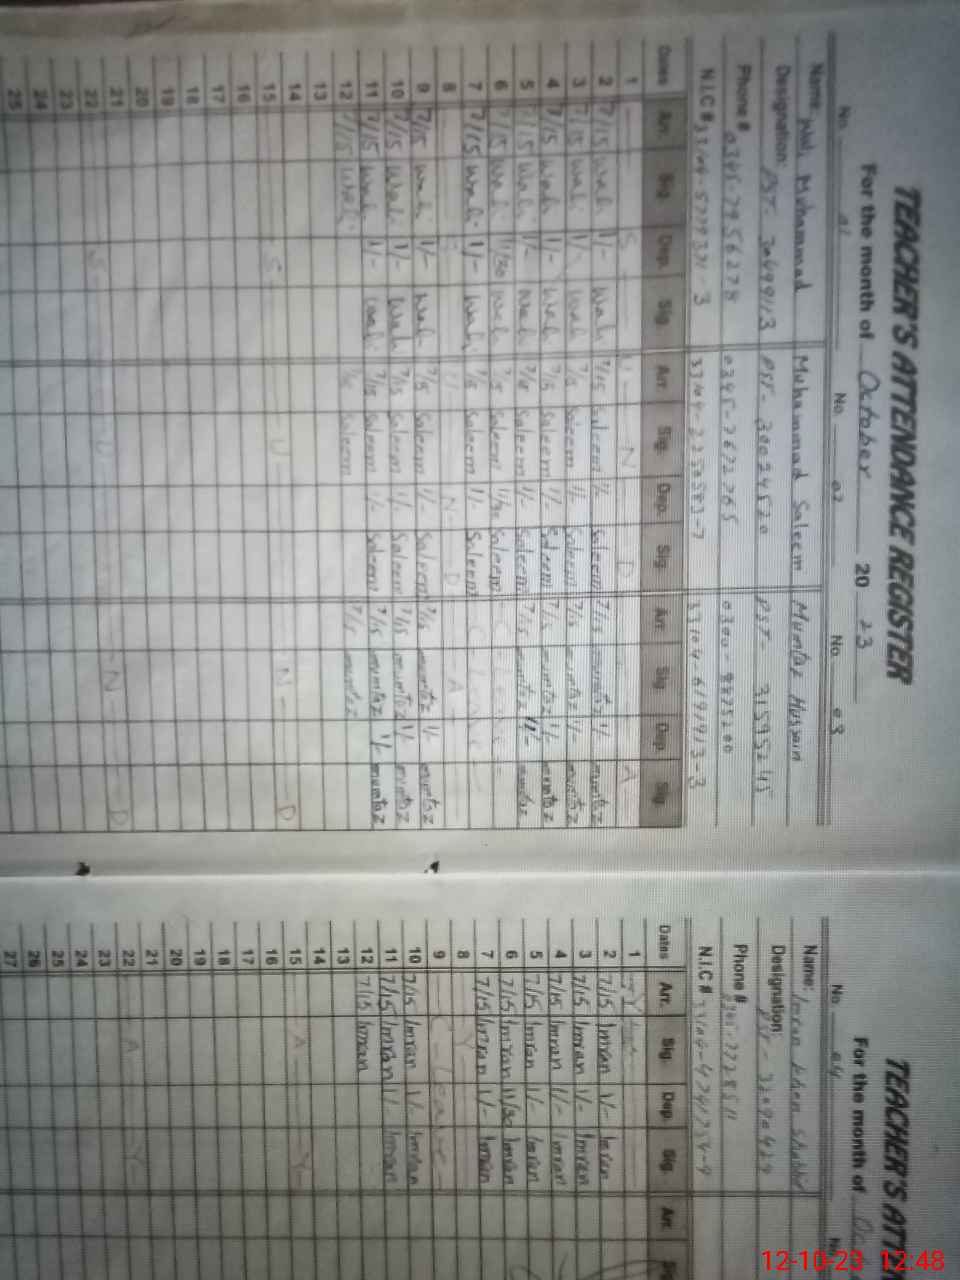 TEACHER'S ATTENDANCE REGISTER
For the month of October 2023
No. 01 No. 02 No. 03
Name: Wali Muhammad Muhammad Saleem Mumtaz Hussain
Designation: PST- 30499113 PST- 30024520 PST- 31595245
Phone # 0345-7956278 0345-7672765
N.I.C # 33104-2250583-7 33104-6191913-3
Dates Arr. Sig. Dep. Sig. Arr. Sig. Dep. Sig. Arr. Sig. Dep. Sig.
1 S U N D A
2 7/15 Wali 1/- Wali 7/15 Saleem 1/- Saleem 7/15 mumtaz 1/- mumtaz
3 7/15 Wali 1/- Wali 7/15 Saleem 1/- Saleem 7/15 mumtaz 1/- mumtaz
4 7/15 Wali 1/- Wali 7/15 Saleem 1/- Saleem 7/15 mumtaz 1/- mumtaz
5 7/15 Wali 1/- Wali 7/15 Saleem 1/- Saleem 7/15 mumtaz 1/- mumtaz
6 7/15 Wali 11/30 Wali 7/15 Saleem 11/30 Saleem C-Leave
7 7/15 Wali 1/- Wali 7/15 Saleem 1/- Saleem C-Leave
8 S U N D A
9 7/15 Wali 1/- Wali 7/15 Saleem 1/- Saleem 7/15 mumtaz 1/- mumtaz
10 7/15 Wali 1/- Wali 7/15 Saleem 1/- Saleem 7/15 mumtaz 1/- mumtaz
11 7/15 Wali 1/- Wali 7/15 Saleem 1/- Saleem 7/15 mumtaz 1/- mumtaz
12 7/15 Wali 7/15 Saleem 7/15 mumtaz
13
14
15 S U N D
16
17
18
19
20
21
22 S U N D
23
24
25
TEACHER'S ATT
For the month of
No. 04
Name: Imran Khan
Designation: PST-
Phone #
N.I.C # 33104-4741754-9
Dates Arr. Sig. Dep. Sig. Arr.
1 Y
2 7/15 Imran 1/- Imran
3 7/15 Imran 1/- Imran
4 7/15 Imran 1/- Imran
5 7/15 Imran 1/- Imran
6 7/15 Imran 11/30 Imran
7 7/15 Imran 1/- Imran
8 Y
9 C-Leave
10 7/15 Imran 1/- Imran
11 7/15 Imran 1/- Imran
12 7/15 Imran
13
14
15 A Y
16
17
18
19
20
21
22 A Y
23
24
25
26
27
12-10-23 12:48